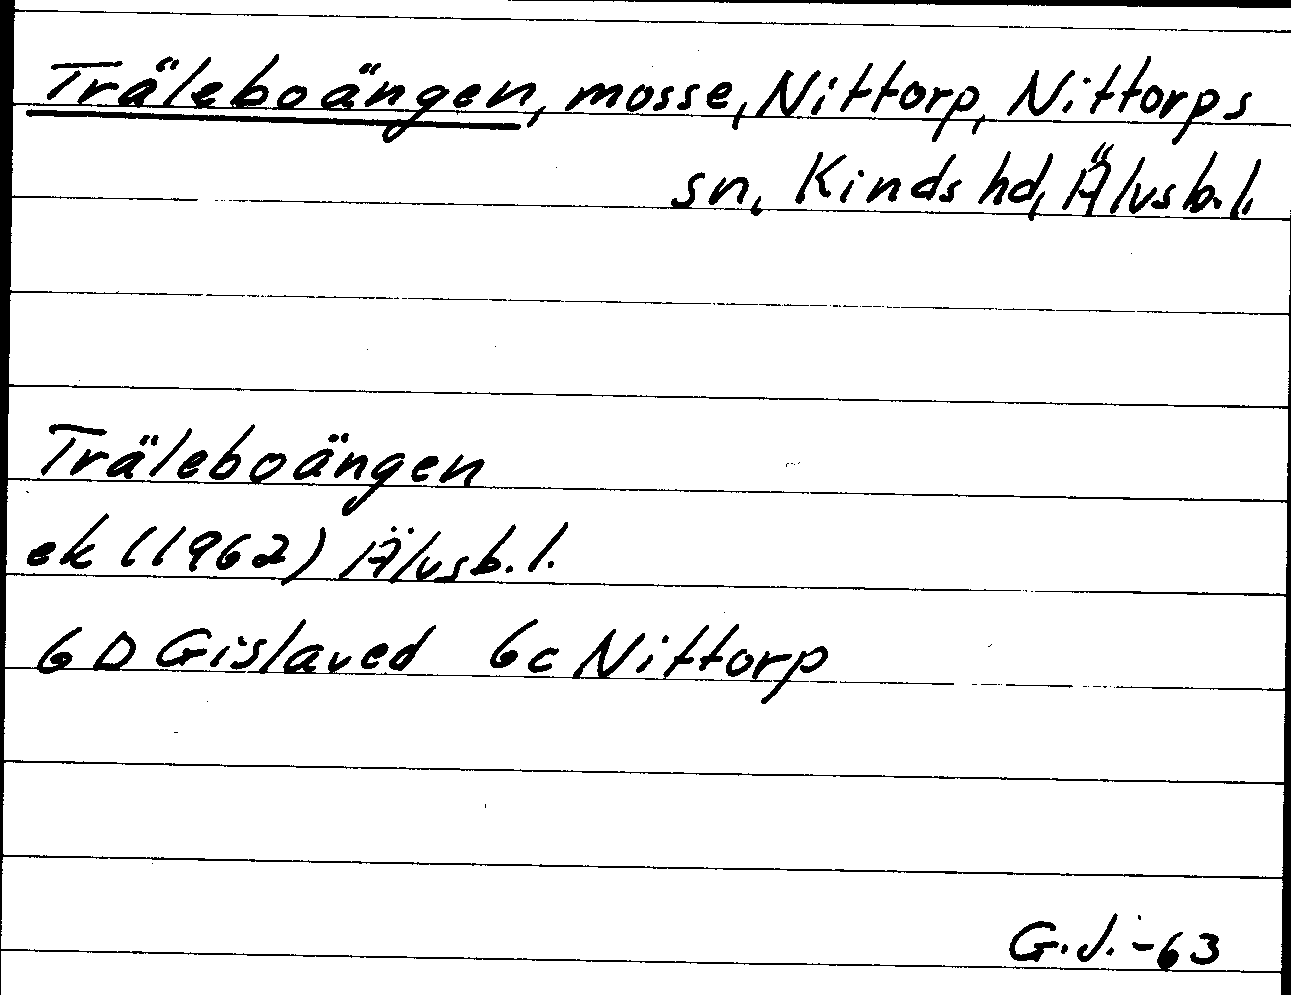 Träleboängen, mosse, Nittorp, Nittorps
sn, Kinds hd, Älvsb. l.
Träleboängen
ek (1962) Älvsb. l.
6 D Gislaved 6c Nittorp
G. J. -63